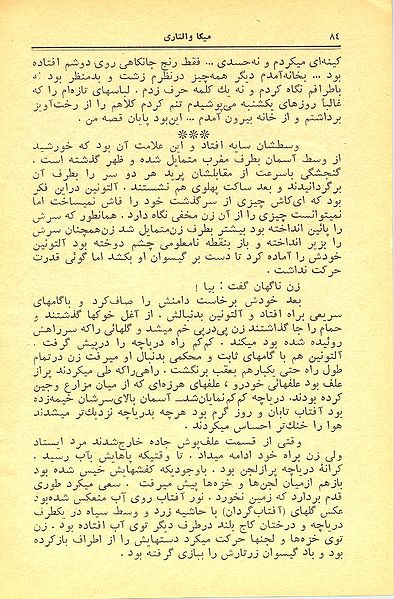 ۸۴
میکا والتاری
کینه‌ای میکردم و نه‌حسدی ... فقط رنج جانکاهی روی دوشم افتاده
بود ... بخانه‌آمدم دیگر همه‌چیز درنظرم زشت و بدمنظر بود به
باطرافم نگاه کردم و نه یك كلمه حرف زدم . لباسهای تازه‌ام را که
غالباً روزهای یکشنبه می‌پوشیدم تنم کردم کلاهم را از رخت‌آویز
برداشتم و از خانه بیرون آمدم ... این‌بود پایان قصه من .
***
وسطشان سایه افتاد و این علامت آن بود که خورشید
از وسط آسمان بطرف مغرب متمایل شده و ظهر گذشته است .
گنجشگی باسرعت از مقابلشان پرید هر دو سر را بطرف آن
برگردانیدند و بعد ساکت پهلوی هم نشستند . آلتونین دراین فکر
بود که ای‌کاش چیزی از سرگذشت خود را فاش نمیساخت اما
نمیتوانست چیزی را از آن زن مخفی نگاه دارد . همانطور که سرش
را پائین انداخته بود بیشتر بطرف زن‌متمایل شد زن‌همچنان سرش
را بزیر انداخته و باز بنقطه نامعلومی چشم دوخته بود آلتونین
خودش را آماده کرد تا دست بر گیسوان او بکشد اما گوئی قدرت
حرکت نداشت .
زن ناگهان گفت : بیا !
بعد خودش برخاست دامنش را صاف‌کرد و باگامهای
سریعی براه افتاد و آلتونین بدنبالش . از آغل خوکها گذشتند و
حمام را جا گذاشتند زن پی‌درپی خم میشد و گلهائی راکه سرراهش
روئیده شده بود میکند . کم‌کم راه دریاچه را درپیش گرفت .
آلتونین هم با گامهای ثابت و محکمی بدنبال او میرفت زن درتمام
طول راه حتی یکبارهم بعقب برنگشت . راهی‌راکه طی میکردند پراز
علف بود علفهائی خودرو ، علفهای هرزه‌ای که از میان مزارع وجین
کرده بودند. دریاچه کم‌کم نمایان‌شد__ آسمان بالای‌سرشان خیمه‌زده
بود آفتاب تابان و روز گرم بود هرچه بدریاچه نزدیك‌تر میشدند
هوا را خنك‌تر احساس میکردند .
وقتی از قسمت علف‌پوش جاده خارج‌شدند مرد ایستاد
ولی زن براه خود ادامه میداد . تا وقتیکه پاهایش بآب رسید .
کرانهٔ دریاچه پرازلجن بود . باوجودیکه کفشهایش خیس شده بود
بازهم ازمیان لجن‌ها و خزه‌ها پیش میرفت . سعی میکرد طوری
قدم بردارد که زمین نخورد . نور آفتاب روی آب منعکس شده‌بود
عکس گلهای (آفتاب‌گردان) با حاشیه زرد و وسط سیاه در یکطرف
دریاچه و درختان کاج بلند درطرف دیگر توی آب افتاده بود . زن
توی خزه‌ها و لجنها حرکت میکرد دستهایش را از اطراف بازکرده
بود و باد گیسوان زرتارش را ببازی گرفته بود .